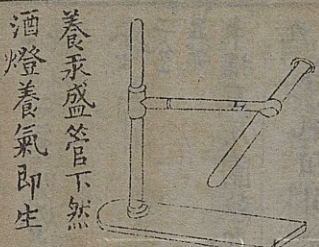 養汞盛管下然
酒燈養氣即生